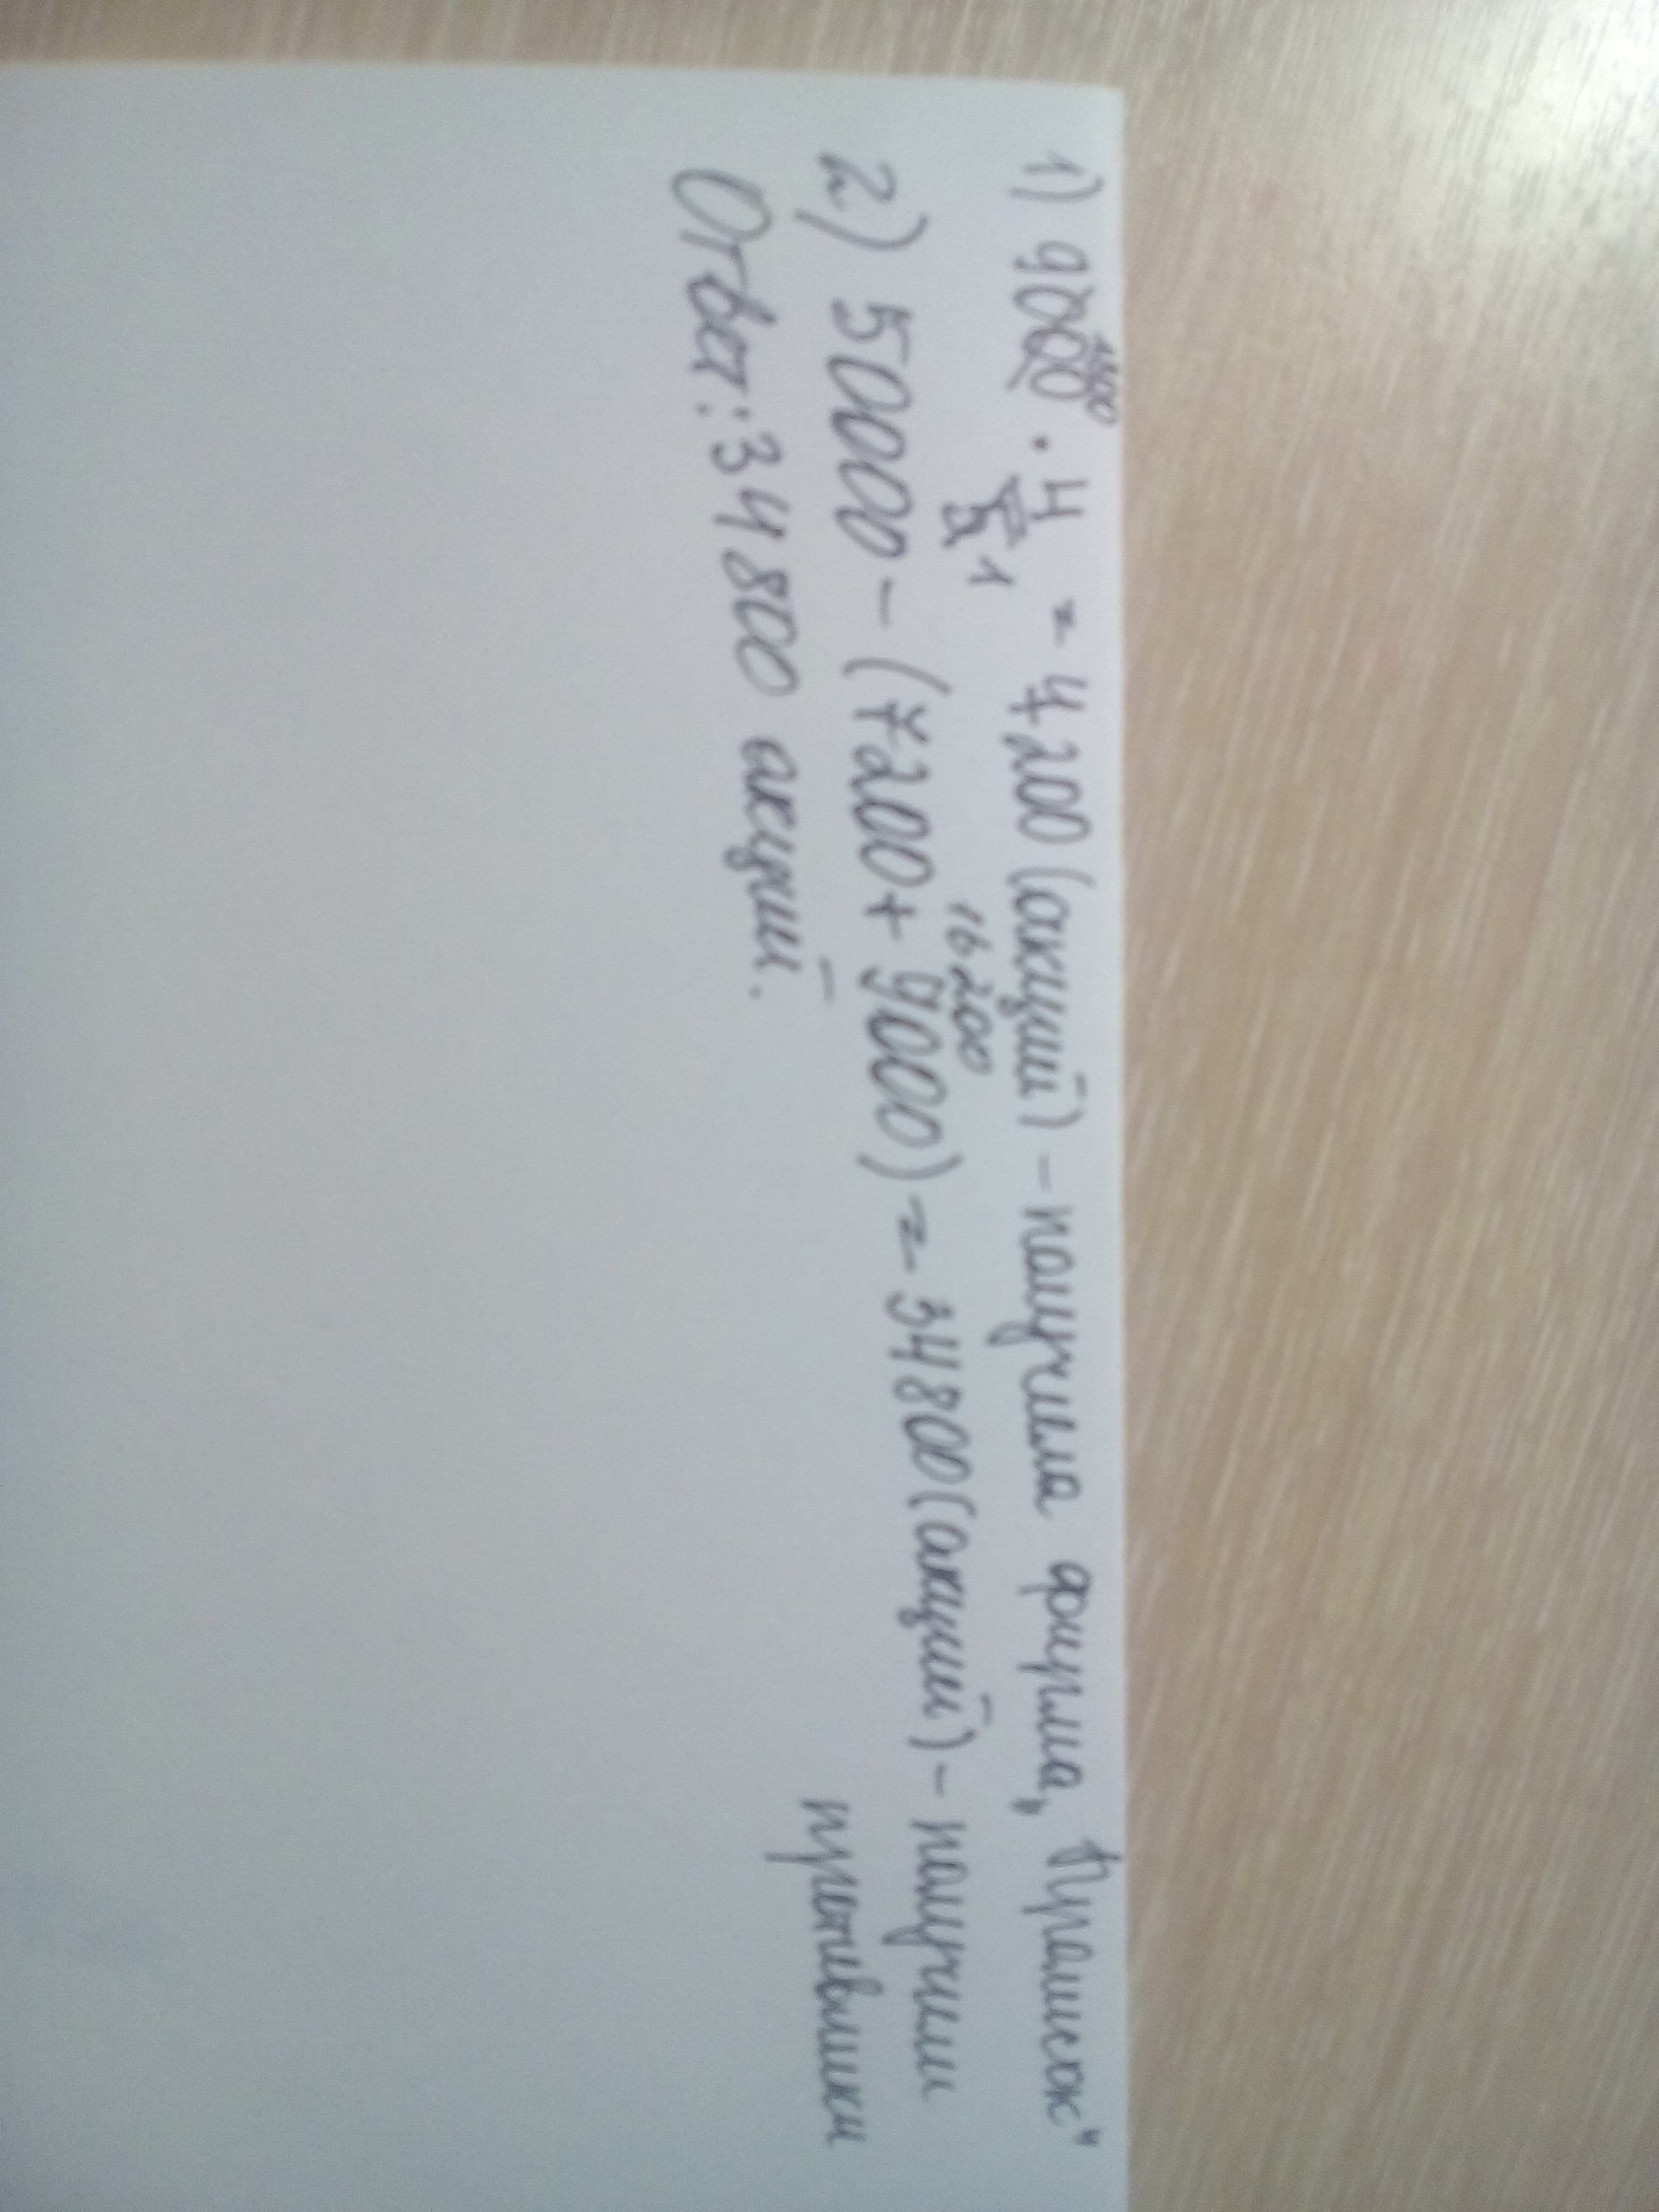 1) 9000 1800 · 4/5 1 = 7200 (акций) - получила фирма „
16 200
2) 50000 - (7200 + 9000) = 34 800 (акций) - получили
противники
Ответ: 34 800 акций.